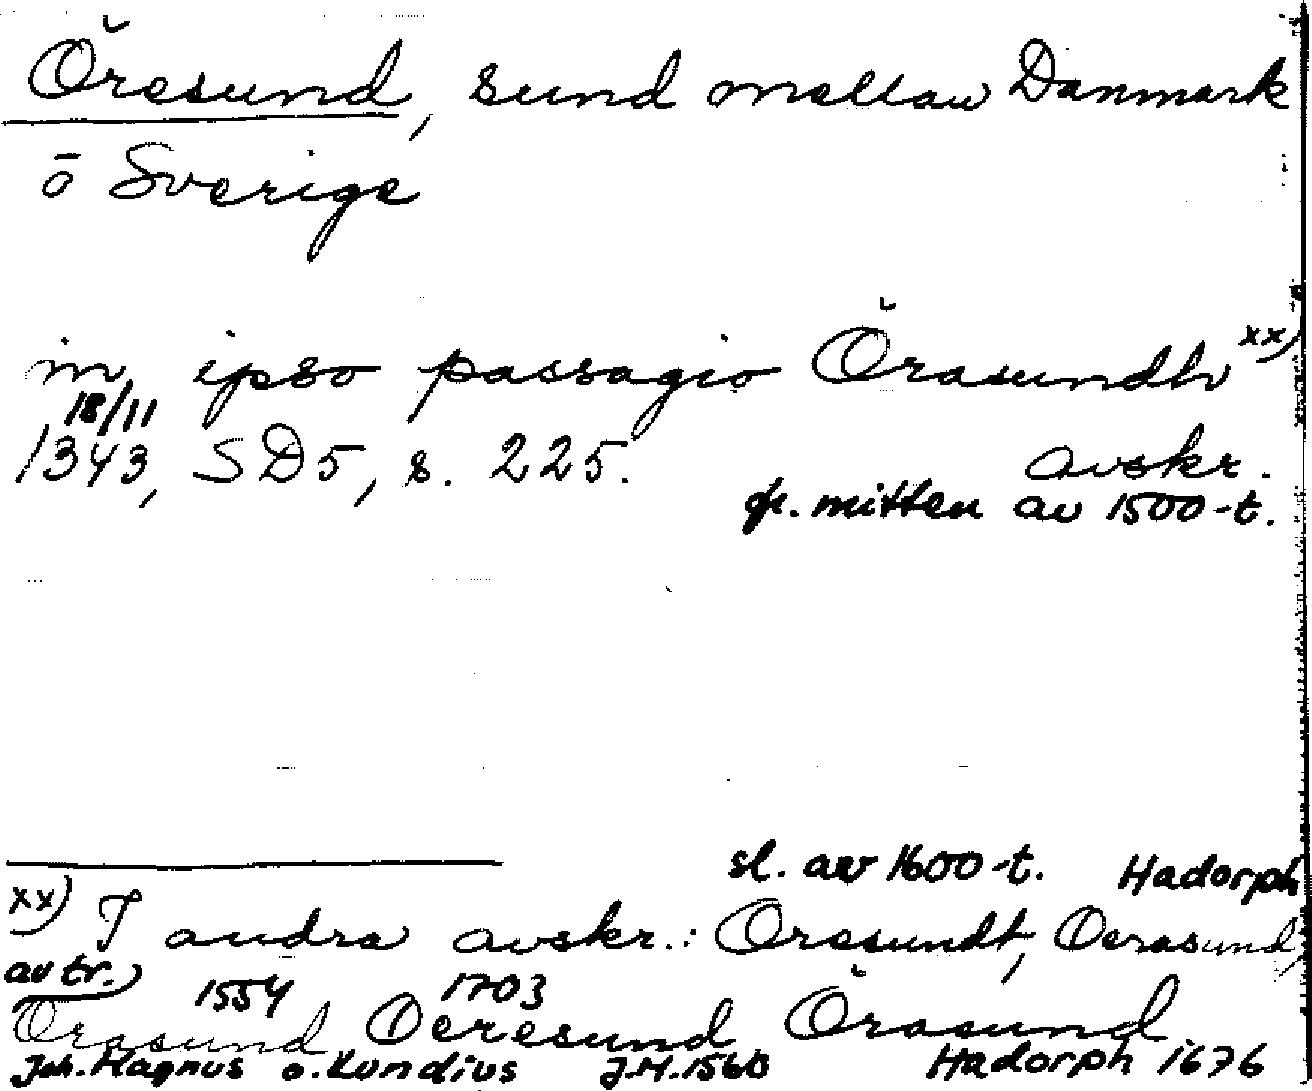 Öresund, sund mellan Danmark
ō Sverige
in ipso passagio Örasundh xx)
18/11
1343, SD5, s. 225. avskr.
fr. mitten av 1500-t.
sl. av 1600-t. Hadorph
xx) I andra avskr.: Oresundt, Oerasund,
av tr.
1554 1703
Orasund Oeresund Örasund
Joh. Magnus o. Lundius J.M. 1560 Hadorph 1676